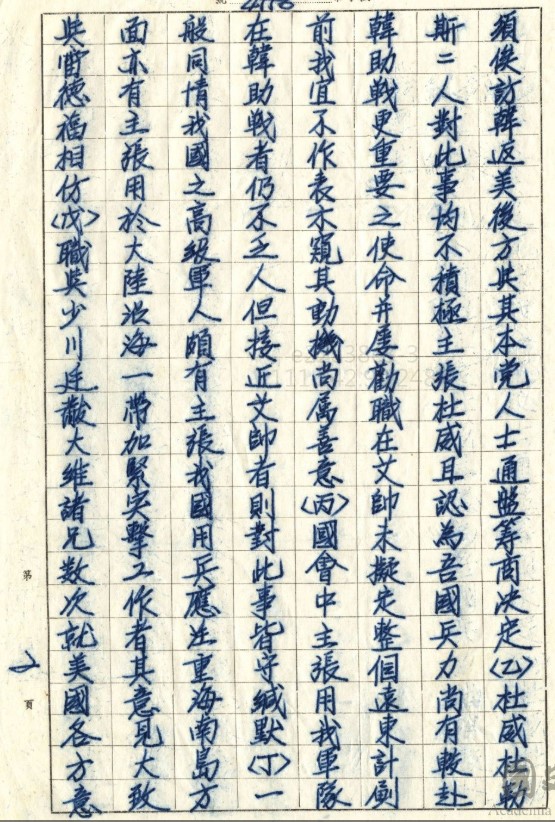 4178
須俟訪韓返美後方與其本党人士通盤筹商决定(乙)杜威杜勒
斯二人對此事均不積極主張杜威且認為吾國兵力尚有較赴
韓助戦更重要之使命并屡勸職在艾帥未擬定整個遠東計劃
前我宜不作表示窺其動機尚属善意(丙)國會中主張用我軍隊
在韓助戦者仍不乏人但接近艾帥者則對此事皆守缄默(丁)一
般同情我國之高級軍人頗有主張我國用兵應注重海南島方
面亦有主張用於大陸沿海一帶加緊突擊工作者其意見大致
與雷德福相仿(戊)職與少川廷黻大維諸兄数次就美國各方意
第
2
頁